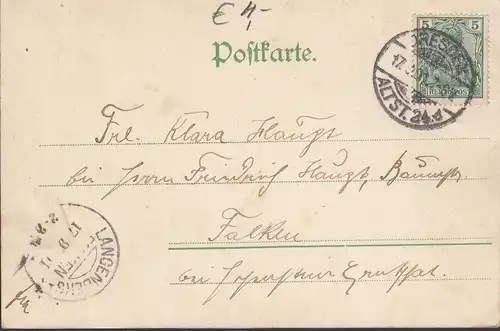 € 4,-
Postkarte.
5 5
DRESDEN
17.
ALTST. 24.d
Frl. Klara Haupt
bei Herrn Friedrich Haupt,
Falken
bei Hohenstein Ernstthal.
LANGEN
17 9